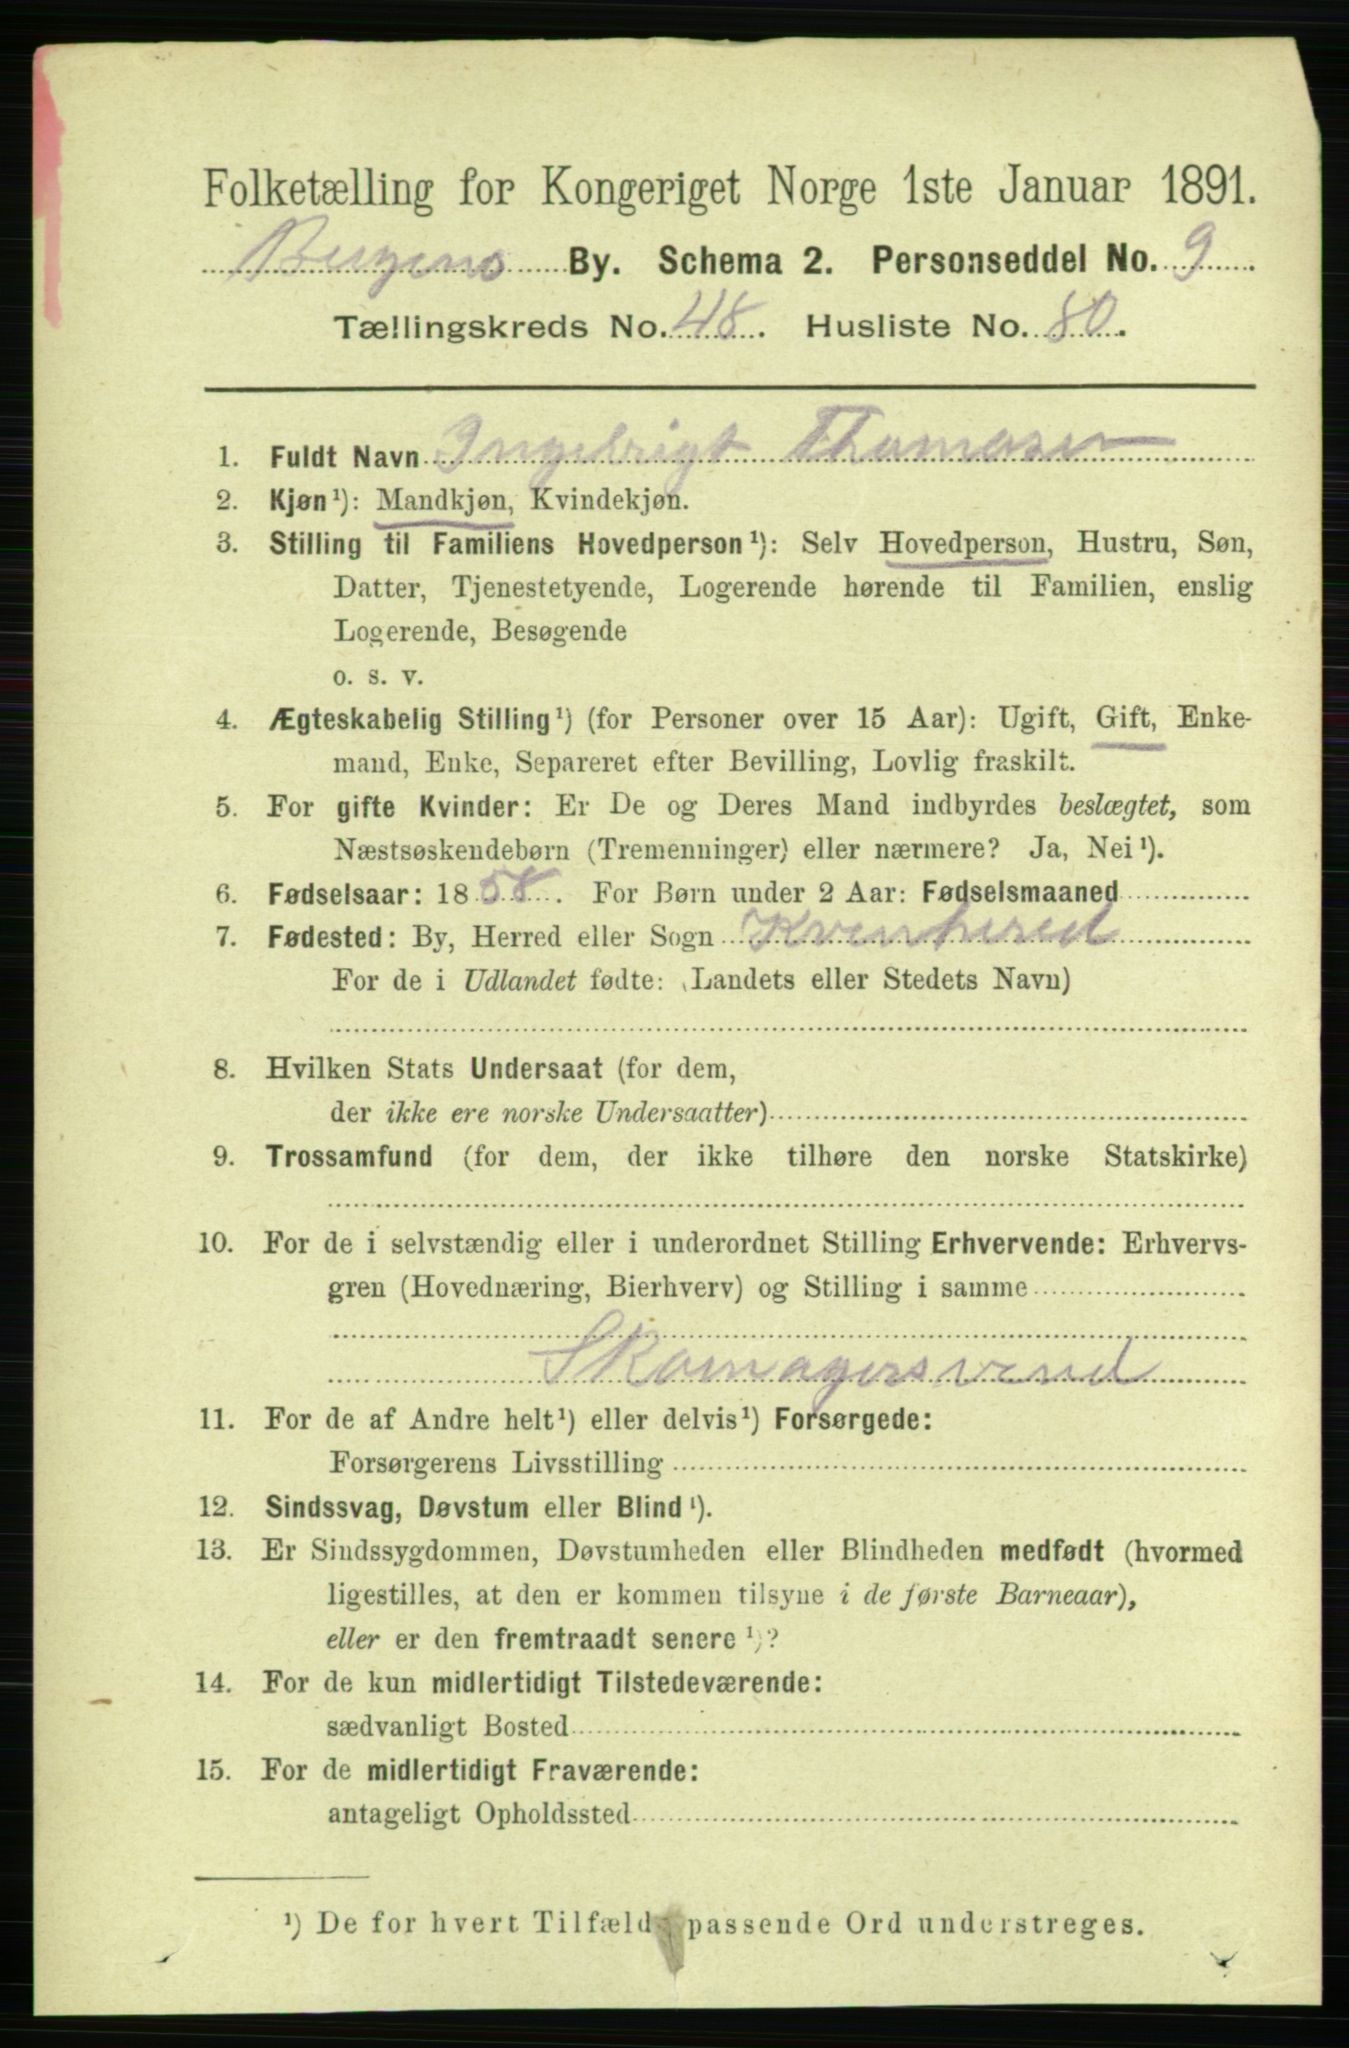 Folketælling for Kongeriget Norge 1ste Januar 1891.
Bergens By. Schema 2. Personseddel No. 9
Tællingskreds No. 48. Husliste No. 80.
1. Fuldt Navn Ingebrigt Thomasen
2. Kjøn¹): Mandkjøn, Kvindekjøn.
3. Stilling til Familiens Hovedperson¹): Selv Hovedperson, Hustru, Søn,
Datter, Tjenestetyende, Logerende hørende til Familien, enslig
Logerende, Besøgende
o. s. v.
4. Ægteskabelig Stilling¹) (for Personer over 15 Aar): Ugift, Gift, Enke-
mand, Enke, Separeret efter Bevilling, Lovlig fraskilt.
5. For gifte Kvinder: Er De og Deres Mand indbyrdes beslægtet, som
Næstsøskendebørn (Tremenninger) eller nærmere? Ja, Nei¹).
6. Fødselsaar: 1858. For Børn under 2 Aar: Fødselsmaaned
7. Fødested: By, Herred eller Sogn Kvinhered
For de i Udlandet fødte: (Landets eller Stedets Navn)
8. Hvilken Stats Undersaat (for dem,
der ikke ere norske Undersaatter)
9. Trossamfund (for dem, der ikke tilhøre den norske Statskirke)
10. For de i selvstændig eller i underordnet Stilling Erhvervende: Erhvervs-
gren (Hovednæring, Bierhverv) og Stilling i samme
Skomagersvend
11. For de af Andre helt¹) eller delvis¹) Forsørgede:
Forsørgerens Livsstilling
12. Sindssvag, Døvstum eller Blind¹).
13. Er Sindssygdommen, Døvstumheden eller Blindheden medfødt (hvormed
ligestilles, at den er kommen tilsyne i de første Barneaar),
eller er den fremtraadt senere¹)?
14. For de kun midlertidigt Tilstedeværende:
sædvanligt Bosted
15. For de midlertidigt Fraværende:
antageligt Opholdssted
¹) De for hvert Tilfælde passende Ord understreges.